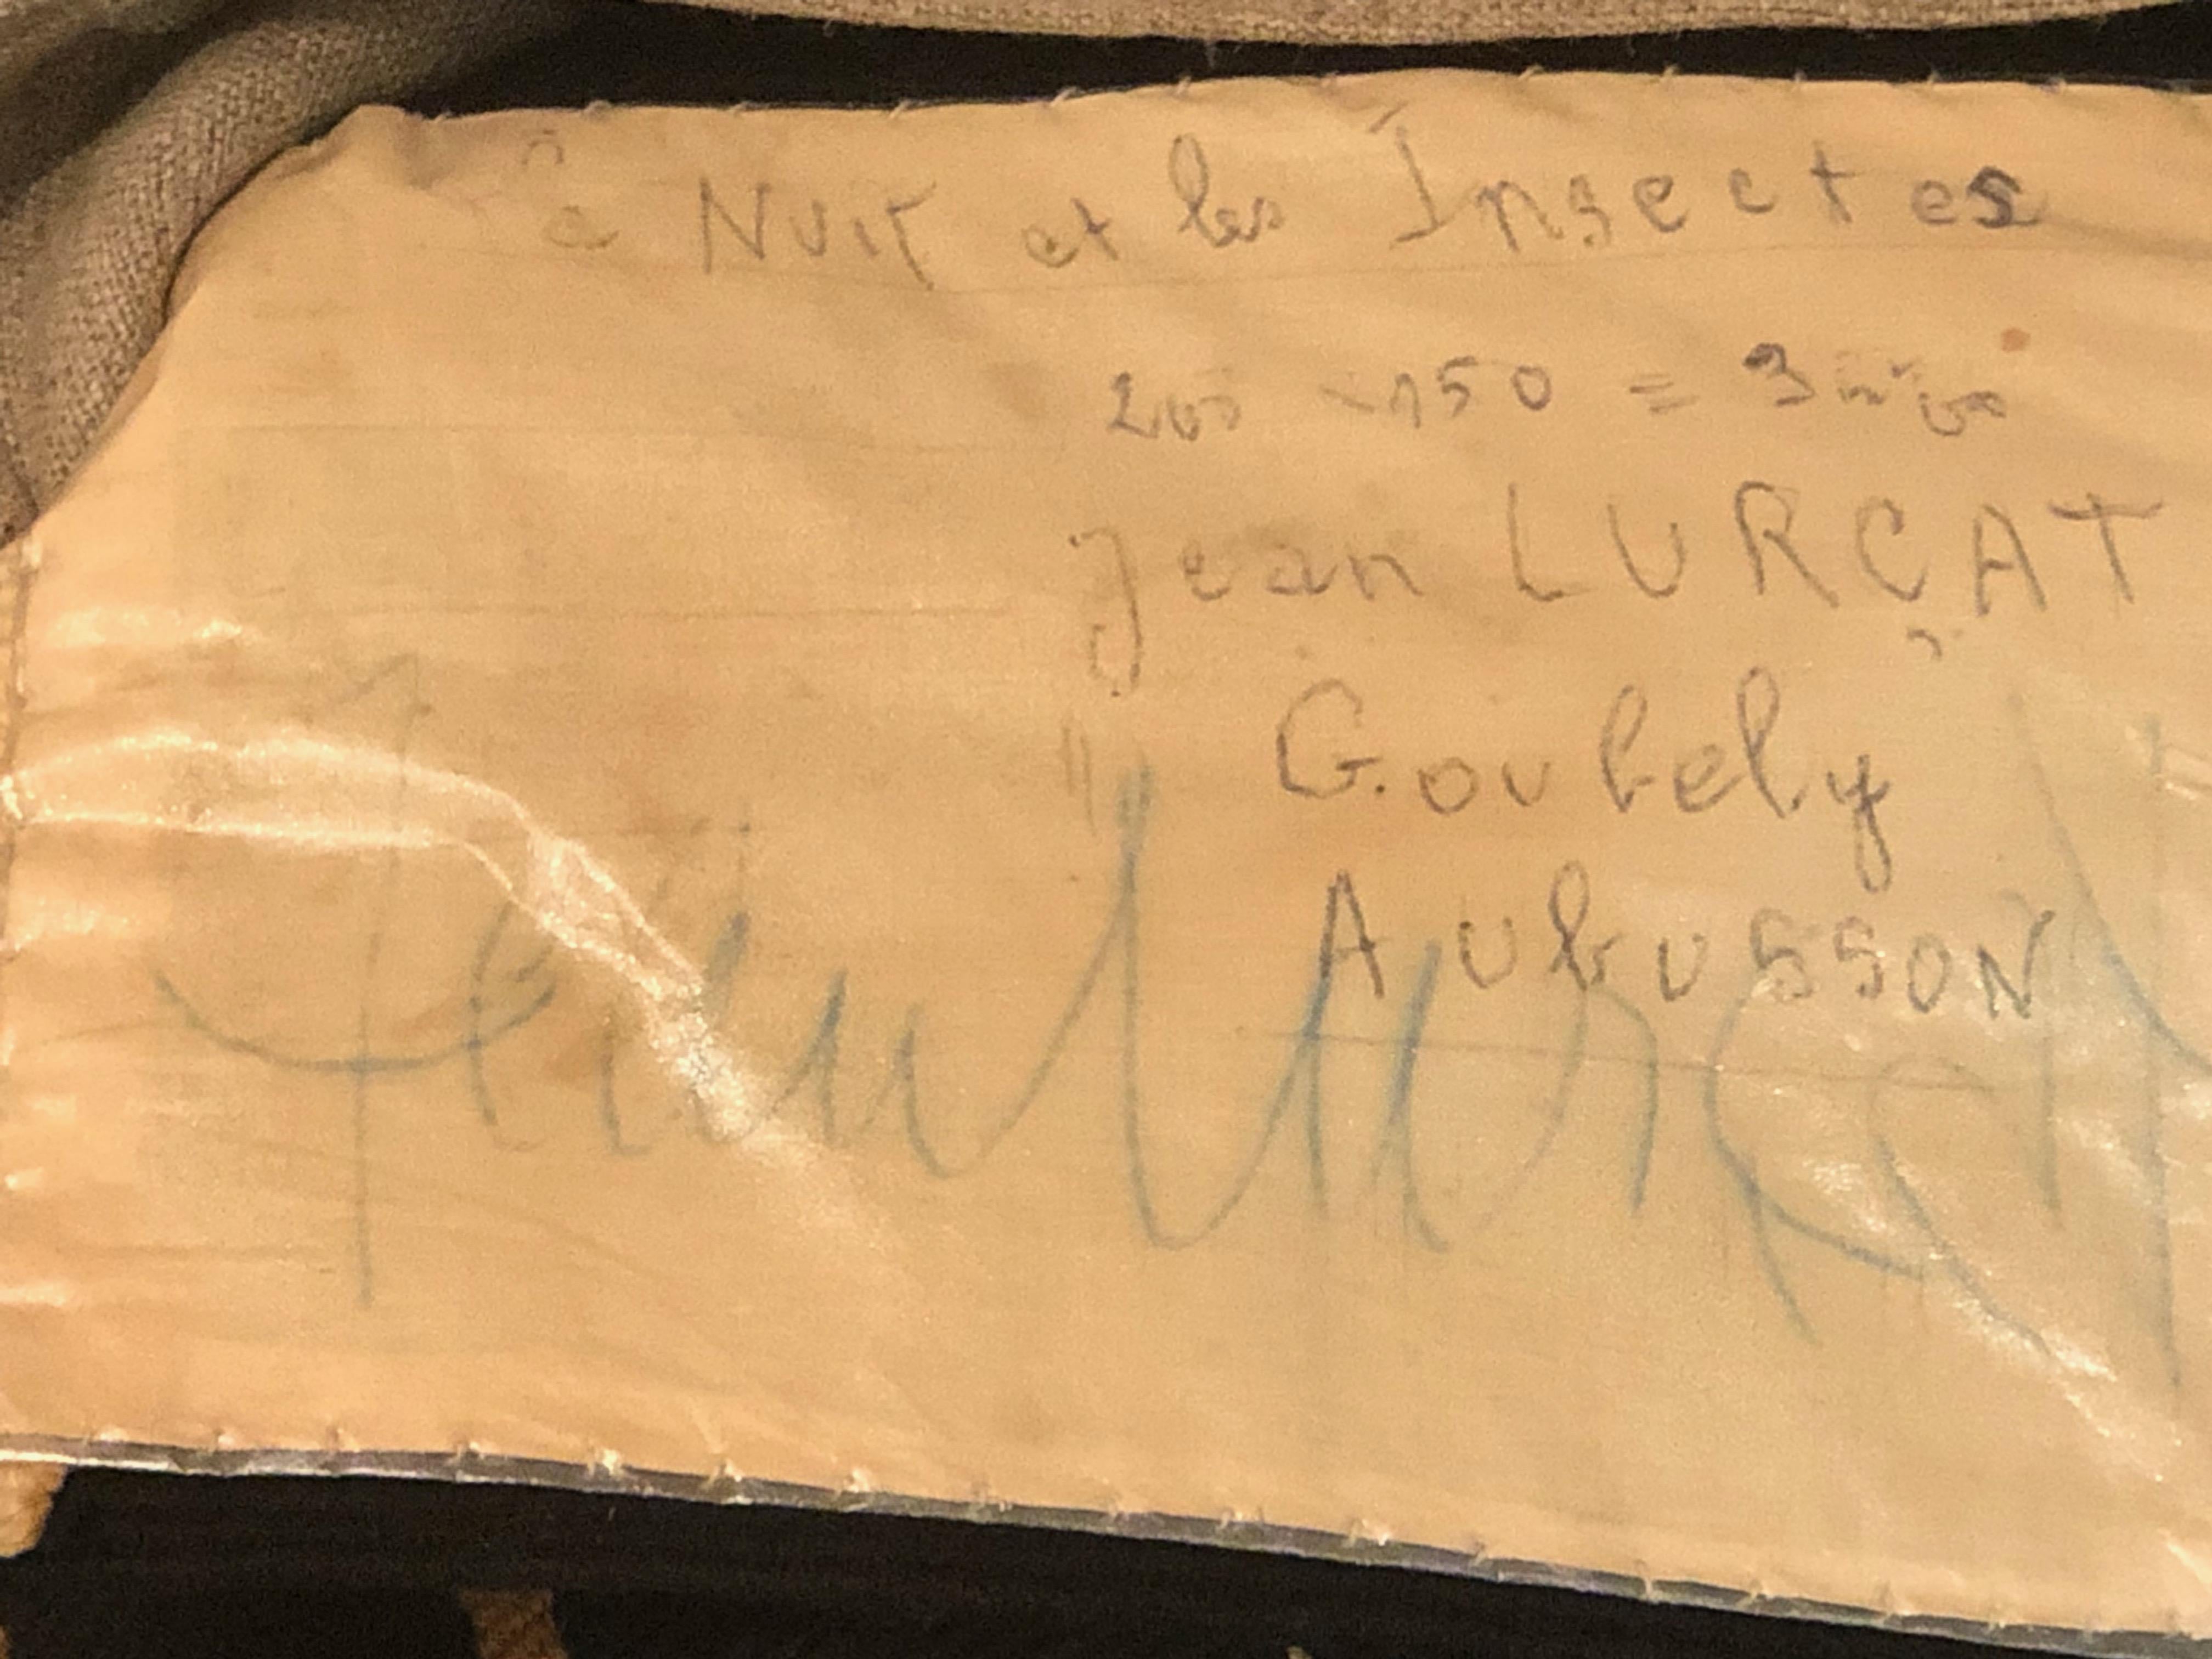 La NUIT et les Insectes
200 × 150 = 3 m² 00
Jean LURÇAT
" Goubely
AubussoN
Jean Lurçat